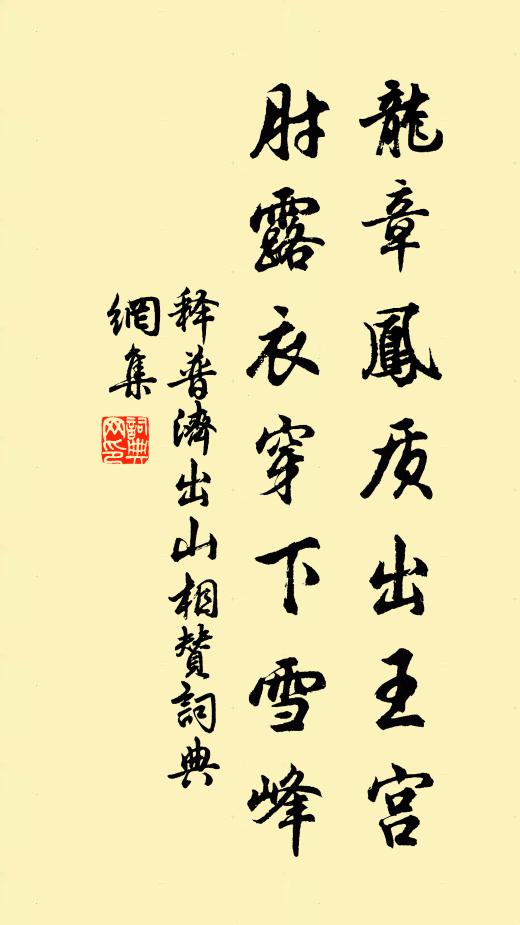 龍章鳳质出王宫
肘露衣穿下雪峰
释普濟出山相赞詞典
網集
詞典网印